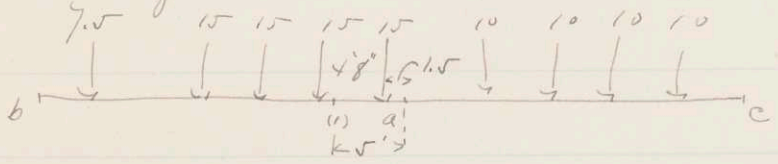 7.5 15 15 15 15 10 10 10 10
4'8" 1.5
b (1) a c
5'